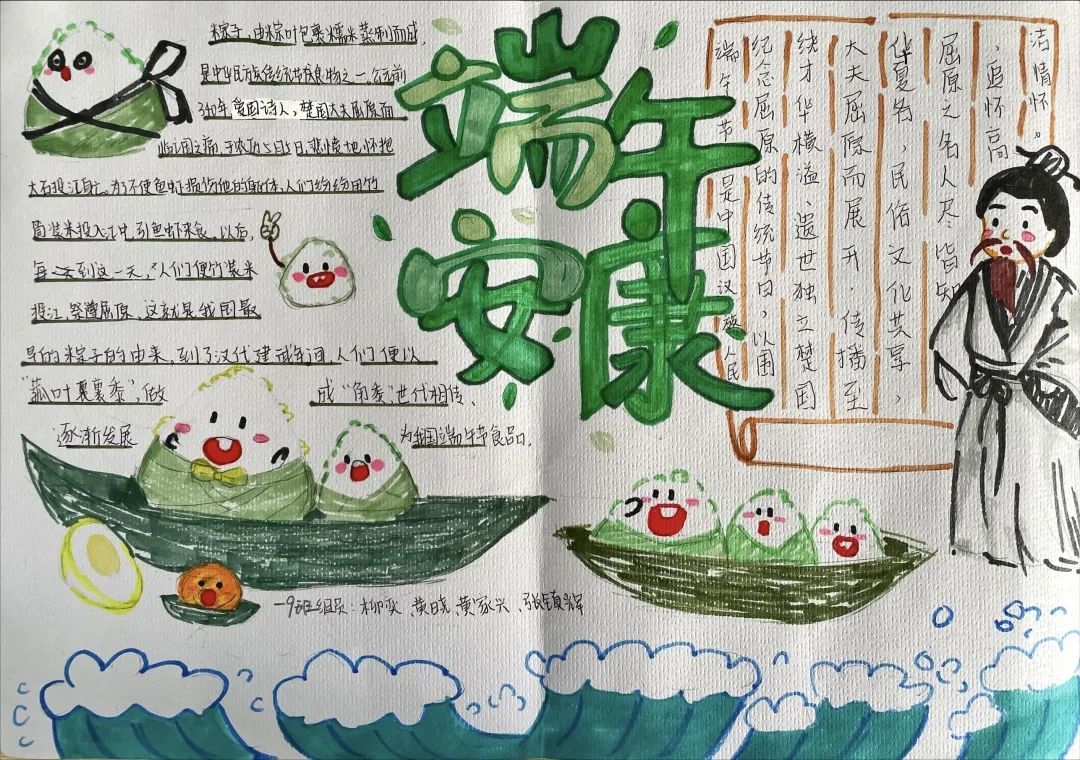 端午
安康
粽子，由粽叶包裹糯米蒸制而成，
是中华民族传统节庆食物之一。公元前
340年，爱国诗人，楚国大夫屈原面
临亡国之痛，于农历5月5日，悲愤地怀抱
大石投江自亡。为了不使鱼虾损伤他的躯体，人们纷纷用竹
筒装米投入江中，引鱼虾来食。以后，
每年到这一天，人们便竹装米
投江，祭奠屈原，这就是我国最
早的粽子的由来，到了汉代建武年间，人们便以
"菰叶裹黍"，做成"角黍"，世代相传，
逐渐发展为我国端午节食品。
端午节是中国汉族人民
纪念屈原的传统节日，以围
绕才华横溢、遗世独立楚国
大夫屈原而展开，传播至
华夏名，民俗文化共享，
屈原之名人尽皆知
，追怀高
洁情怀。
一9班组员：柳 黄晓 黄家兴 张镇辉